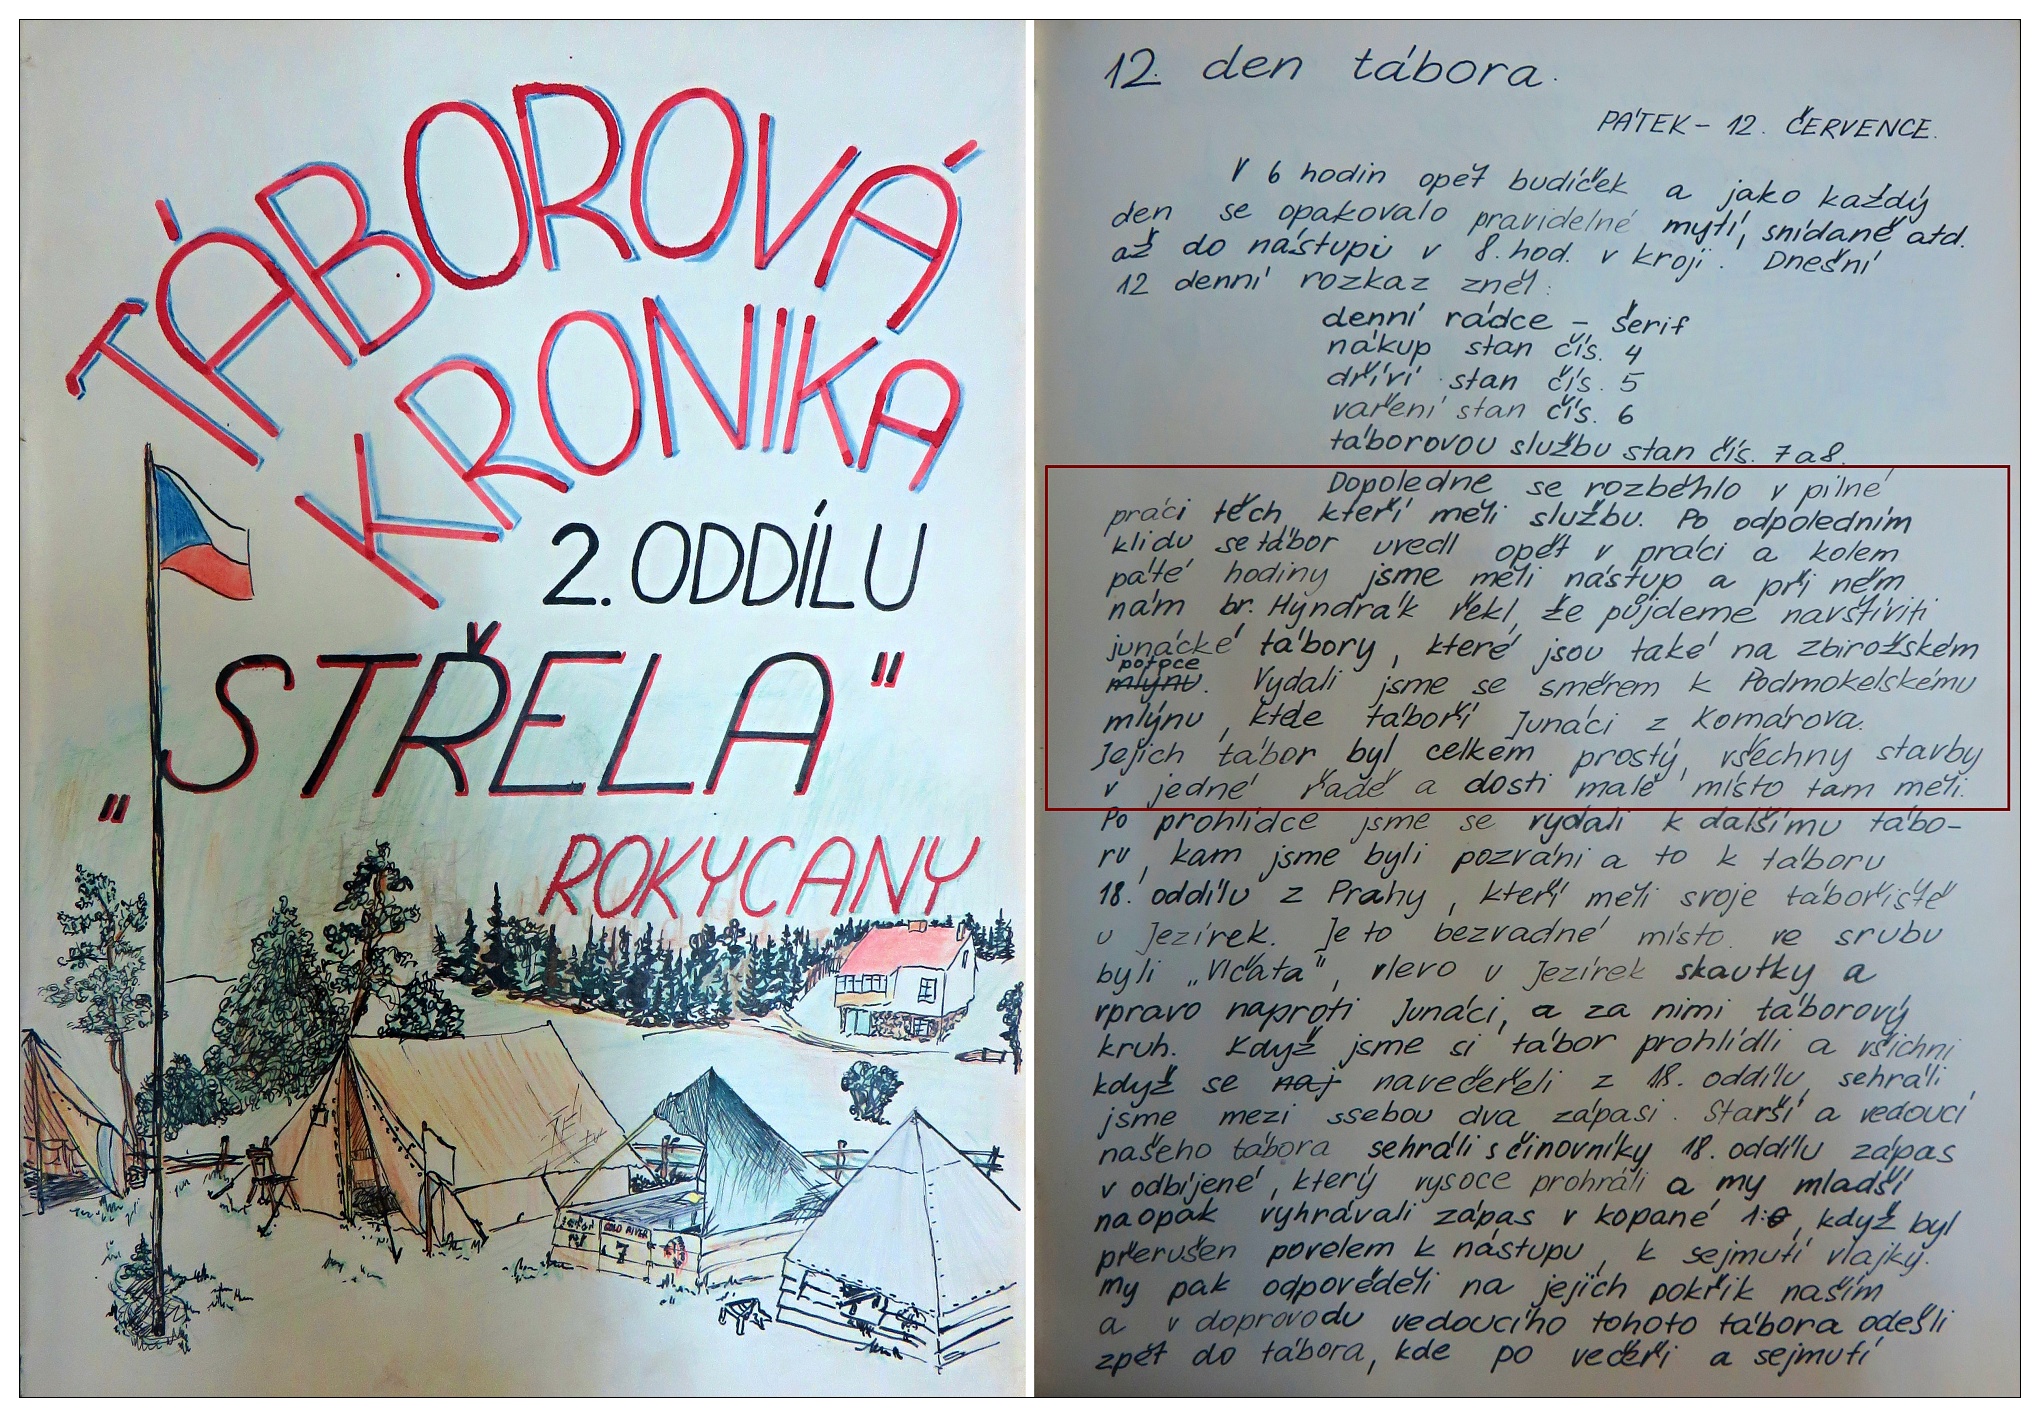 TÁBOROVÁ
KRONIKA
2. ODDÍLU
"STŘELA"
ROKYCANY
GOLD RIVER
12. den tábora.
PÁTEK - 12. ČERVENCE.
V 6 hodin opět budíček a jako každý
den se opakovalo pravidelné mytí, snídaně atd.
až do nástupu v 8. hod. v kroji. Dnešní
12 denní rozkaz zněl:
denní rádce - šerif
nákup stan čís. 4
dříví stan čís. 5
vaření stan čís. 6
táborovou službu stan čís. 7 a 8.
Dopoledne se rozběhlo v pilné
práci těch, kteří měli službu. Po odpoledním
klidu se tábor uvedl opět v práci a kolem
páté hodiny jsme měli nástup a při něm
nám br. Hyndrák řekl, že půjdeme navštíviti
junácké tábory, které jsou také na Zbirožském
potoce
mlýnu. Vydali jsme se směrem k Podmokelskému
mlýnu, kde táboří Junáci z Komárova.
Jejich tábor byl celkem prostý, všechny stavby
v jedné řadě a dosti malé místo tam měli.
Po prohlídce jsme se vydali k dalšímu tábo-
ru, kam jsme byli pozváni a to k táboru
18. oddílu z Prahy, kteří měli svoje tábořiště
u Jezírek. Je to bezvadné místo. ve srubu
byli „Vlčata", vlevo u Jezírek skautky a
vpravo naproti Junáci, a za nimi táborový
kruh. Když jsme si tábor prohlídli a všichni
když se naj navečeřeli z 18. oddílu, sehráli
jsme mezi ssebou dva zápasi. Starší a vedoucí
našeho tábora sehráli s činovníky 18. oddílu zápas
v odbíjené, který vysoce prohráli a my mladší
naopak vyhrávali zápas v kopané 1:0, když byl
přerušen povelem k nástupu, k sejmutí vlajky.
my pak odpověděli na jejich pokřik naším
a v doprovodu vedoucího tohoto tábora odešli
zpět do tábora, kde po večeři a sejmutí